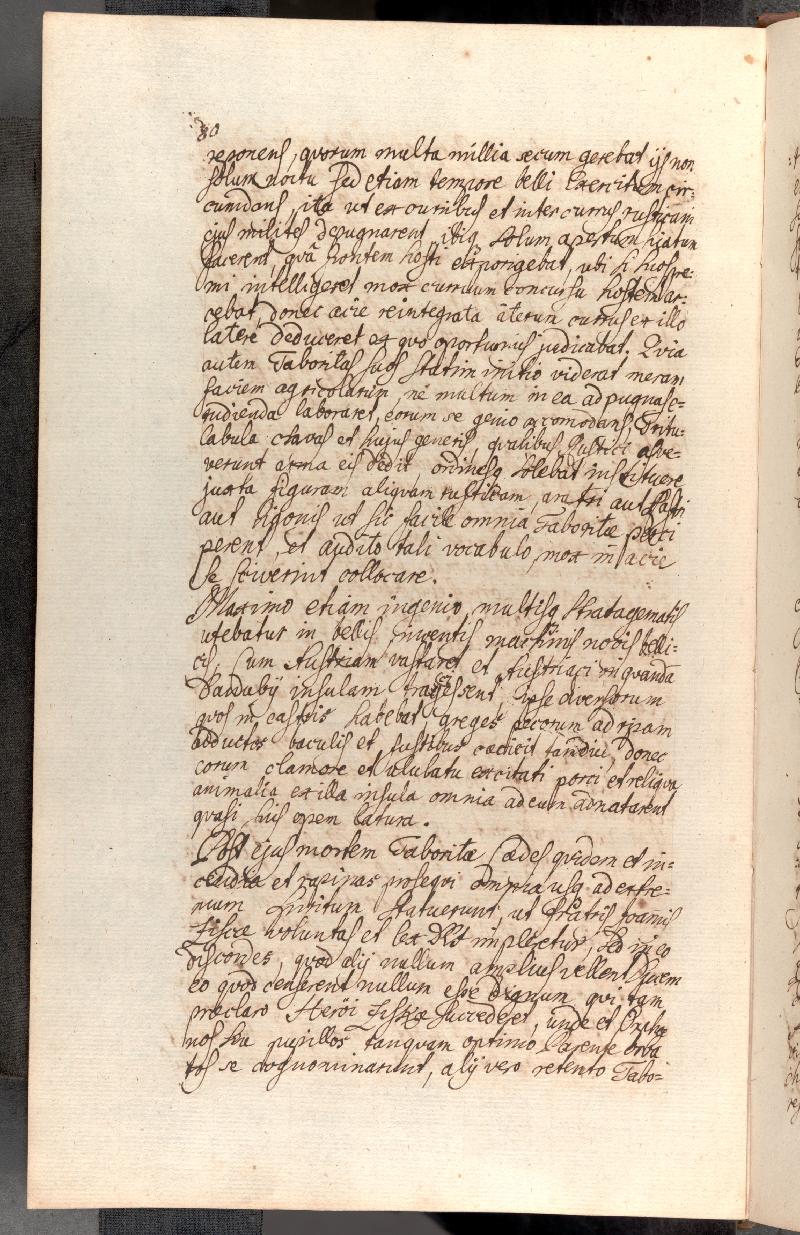 80
reponens, quorum multa millia secum gerebat ijs non
solum noctu sed etiam tempore belli Exercitum cir-
cumdans, ita ut ex curribus et inter currus rusticani
ejus milites depugnarent, ibiq solum apertum hiatum
facerent, quâ frontem hosti exponebat, ubi si suos pre-
mi intelligeret mox curruum concursu hostem ar-
cebat, donec acie reintegrata iterum currus ex illo
latere deduceret ex quo oportunius judicabat. Quia
autem Taboritas suos statim initio viderat meram
faciem agricolarum, ne multum in ea ad pugnas e-
rudienda laboraret, eorum se genio accomodans, Tritu-
labula clavas et hujus generis qualibus Rustici assve-
verunt arma eis dedit ordinesq solebat instituere
juxta figuram aliquam rusticam, aratri aut Rastri
aut ligonis ut sic facile omnia Taboritæ perci
perent, et audito tali vocabulo mox in acie
se sciverint collocare.
Maximo etiam ingenio, multisq stratagematis
utebatur in bellis, inventis machinis novis belli-
cis, Cum Austriam vastaret et Austriaci in quandã
Danubij insulam tragessent, ipse diversorum
quos in castris habebat greges pecorum ad ripam
adductos baculis et fustibus cædi tamdiu, donec
eorum clamore et ululatu excitati porci et reliqua
animalia ex illa insula omnia ad eum adnatarent
quasi suis opem latura.
Post ejus mortem Taboritæ Cædes quidem et in-
cendia et rapinas prosequi omnia usq ad extre-
mum statuerunt, ut Fratris Joannis
Ziscæ voluntas et lex impleretur, sed in eo
discordes, quod alij nullum amplius vellent Ducem
eo quod censerent nullum esse dignum, qui tam
præclaro Heröi Ziskæ succederet, unde et Orpha
nos seu pupillos tanquam optimo Parente orba
tos se cognominarunt, alij vero retento Tabo-